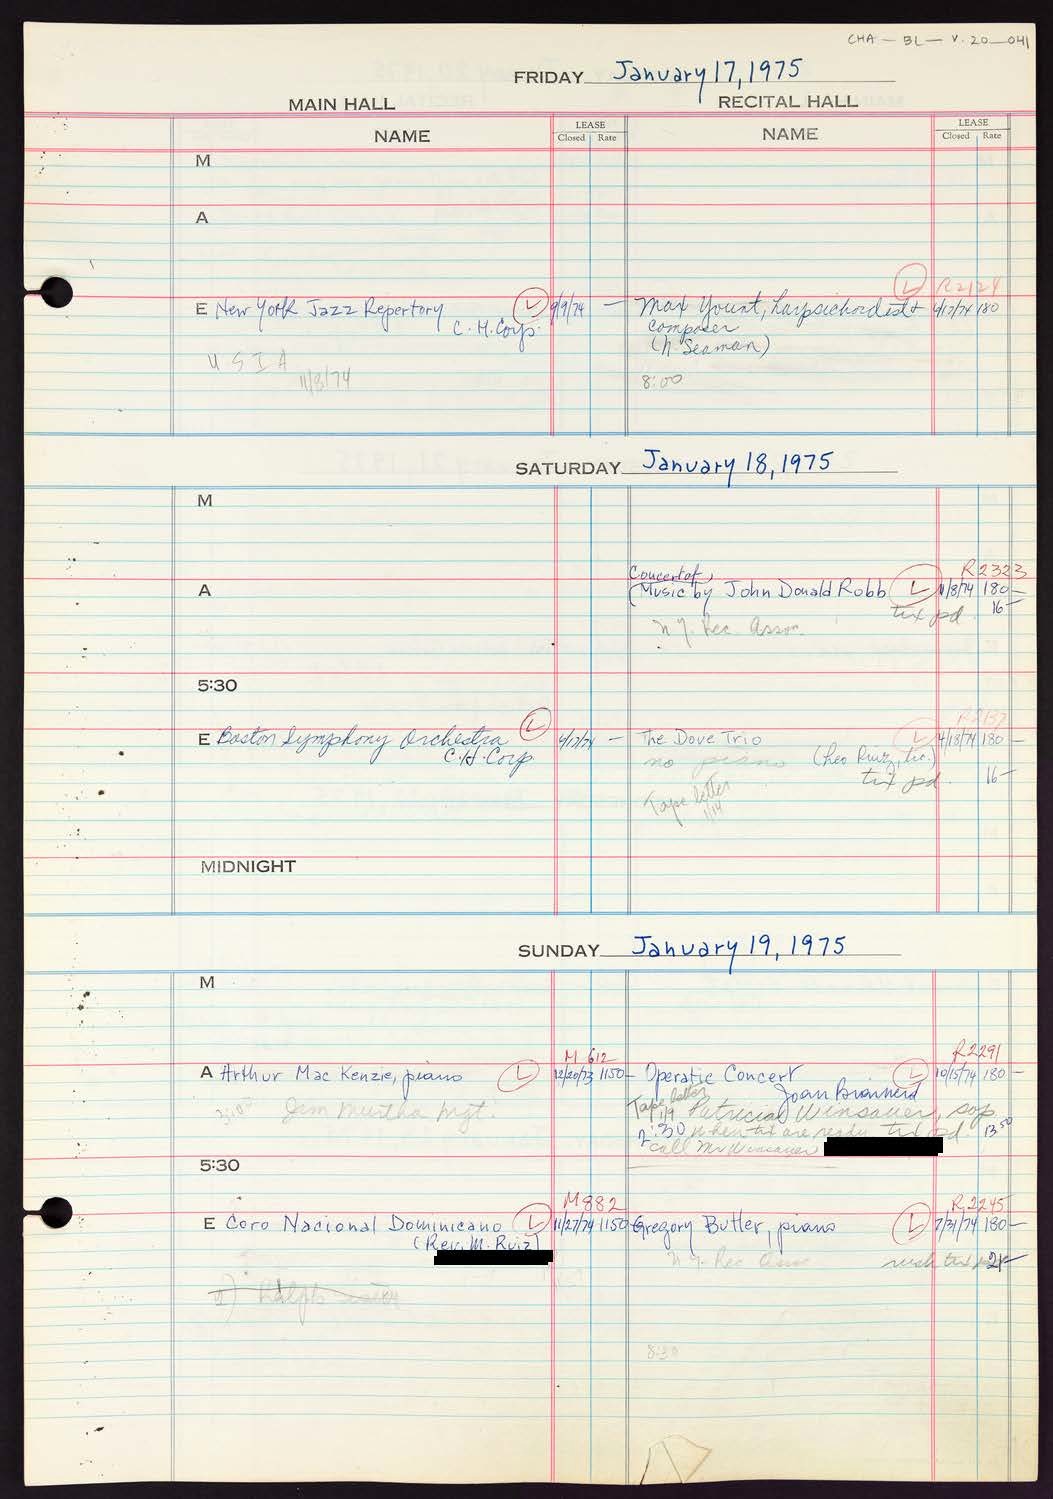 CHA - BL - V. 20_041
FRIDAY January 17, 1975
MAIN HALL RECITAL HALL
NAME LEASE Closed Rate NAME LEASE Closed Rate
M
A
L R2124
E New York Jazz Repertory L 9/9/74 — Max Yount, harpsichordist + 4/17/74 180
C.H. Corp. composer
(N. Seaman)
U S I A
11/8/74 8:00
SATURDAY January 18, 1975
M
Concert of R2323
A Music by John Donald Robb L 11/8/74 180—
tix pd. 16—
N.Y. Rec. Assoc.
5:30
L R2137
E Boston Symphony Orchestra 4/17/74 — The Dove Trio L 4/18/74 180—
C.H. Corp. no piano (Leo Ruiz, tic.)
tix pd. 16—
Tape letter
1/14
MIDNIGHT
SUNDAY January 19, 1975
M
M 612 R2291
A Arthur Mac Kenzie, piano L 12/20/73 1150— Operatic Concert L 10/15/74 180—
Joan Brainerd
Jim Murtha Mgt. Tape letter 1/9 Patricia Winsauer, sop
2:30 when tix are ready tix pd. 13 50
call Mr Winsauer
5:30
M882 R2245
E Coro Nacional Dominicano L 11/27/74 1150 Gregory Butler, piano L 7/31/74 180—
(Rev. M. Ruiz)
N.Y. Rec Assoc rush tix 21—
2) Ralph
8:30